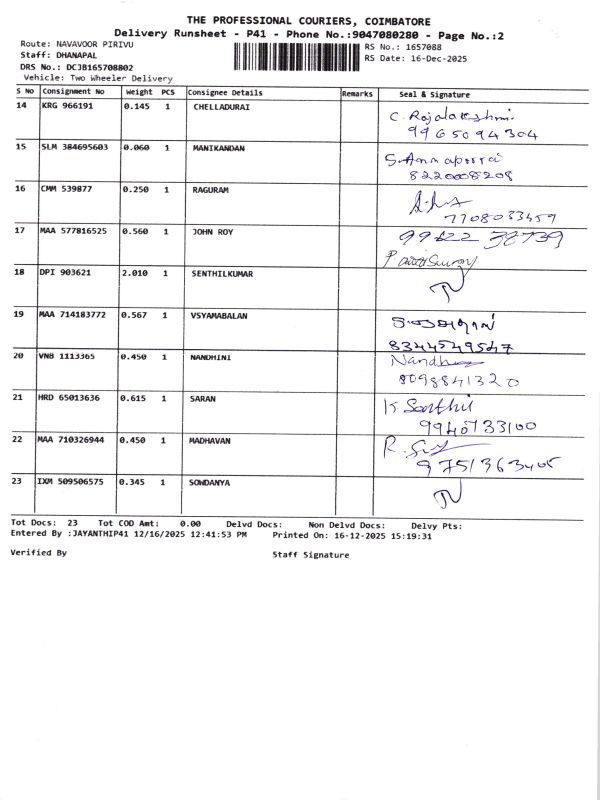 THE PROFESSIONAL COURIERS, COIMBATORE
Delivery Runsheet - P41 - Phone No.:9047080280 - Page No.:2
Route: NAVAVOOR PIRIVU RS No.: 1657088
Staff: DHANAPAL RS Date: 16-Dec-2025
DRS No.: DCJB165708802
Vehicle: Two Wheeler Delivery
S No Consignment No Weight PCS Consignee Details Remarks Seal & Signature
14 KRG 966191 0.145 1 CHELLADURAI
C. Rajalakshmi
9965094304
15 SLM 384695603 0.060 1 MANIKANDAN
8220008208
16 CMM 539877 0.250 1 RAGURAM
7708033459
17 MAA 577816525 0.560 1 JOHN ROY
18 DPI 903621 2.010 1 SENTHILKUMAR
19 MAA 714183772 0.567 1 VSYAMABALAN
8344549547
20 VNB 1113365 0.450 1 NANDHINI
8098841320
21 HRD 65013636 0.615 1 SARAN
22 MAA 710326944 0.450 1 MADHAVAN
23 IXM 509506575 0.345 1 SOWDANYA
Tot Docs: 23 Tot COD Amt: 0.00 Delvd Docs: Non Delvd Docs: Delvy Pts:
Entered By :JAYANTHIP41 12/16/2025 12:41:53 PM Printed On: 16-12-2025 15:19:31
Verified By Staff Signature